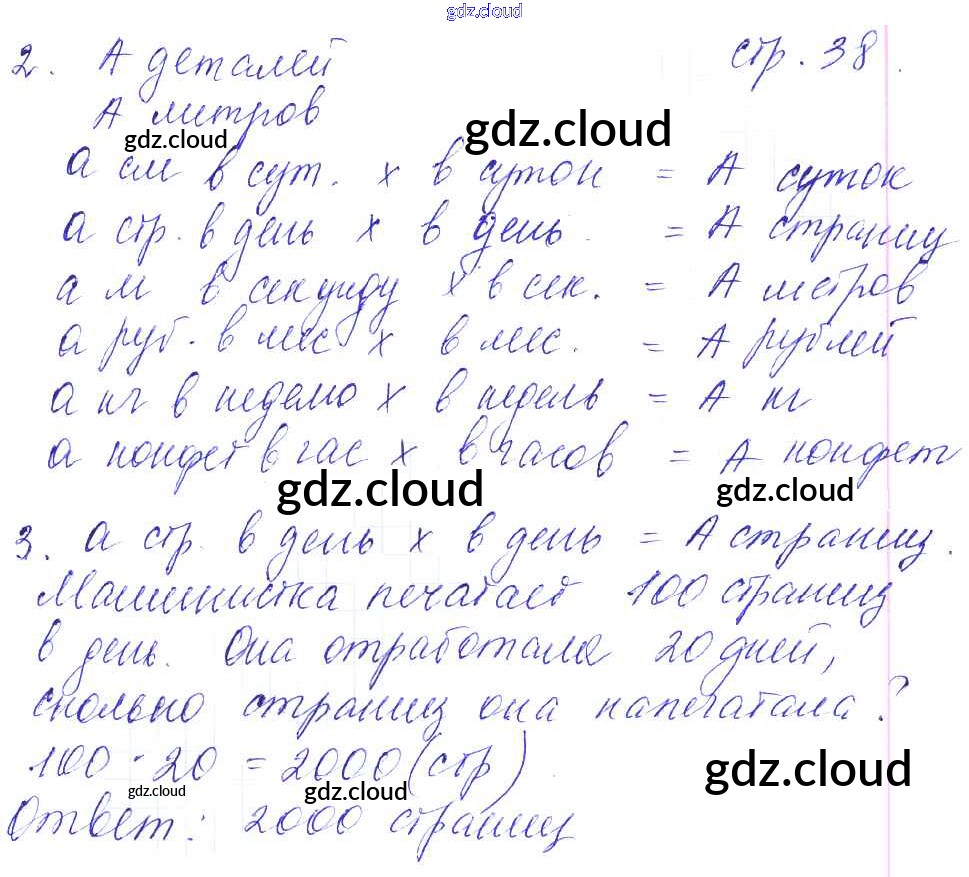 gdz.cloud
2. А деталей стр. 38.
А литров
gdz.cloud gdz.cloud
а см в сут. х в суток = А суток
а стр. в день х в день. = А страниц
а м в секунду х в сек. = А метров
а руб. в мес х в мес. = А рублей
а кг в неделю х в недель = А кг
а конфет в час х в часов = А конфет
gdz.cloud gdz.cloud
3. а стр. в день х в день = А страниц.
Машинистка печатает 100 страниц
в день. Она отработала 20 дней,
сколько страниц она напечатала?
100 · 20 = 2000 (стр)
gdz.cloud gdz.cloud gdz.cloud
Ответ: 2000 страниц